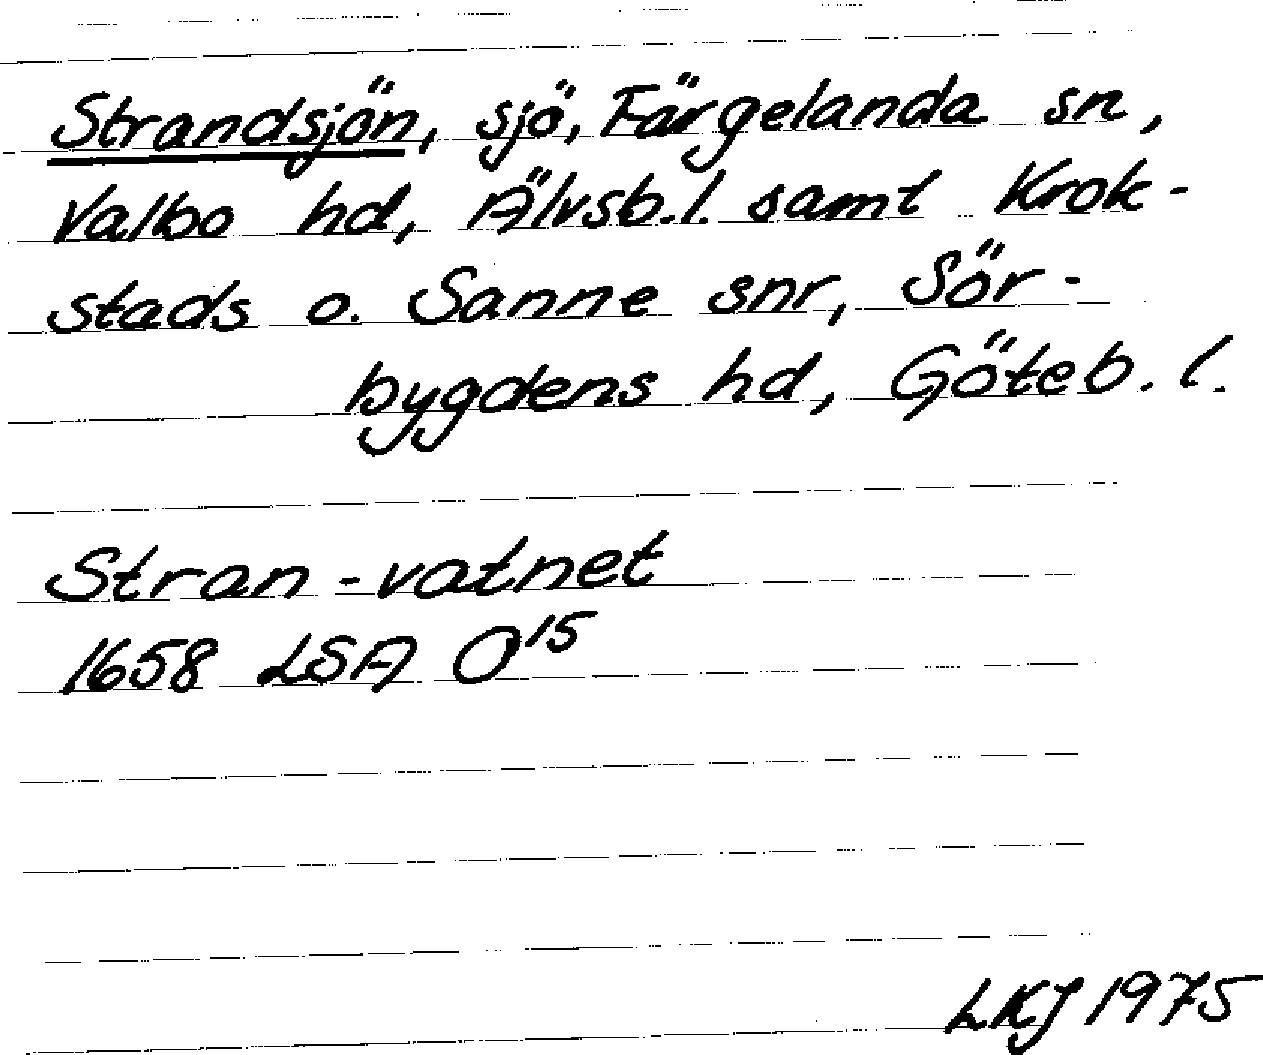 Strandsjön, sjö, Färgelanda sn,
Valbo hd, Älvsb.l. samt Krok-
stads o. Sanne snr, Sör-
bygdens hd, Göteb. l.
Stran-vatnet
1658 LSA O15
LKJ 1975